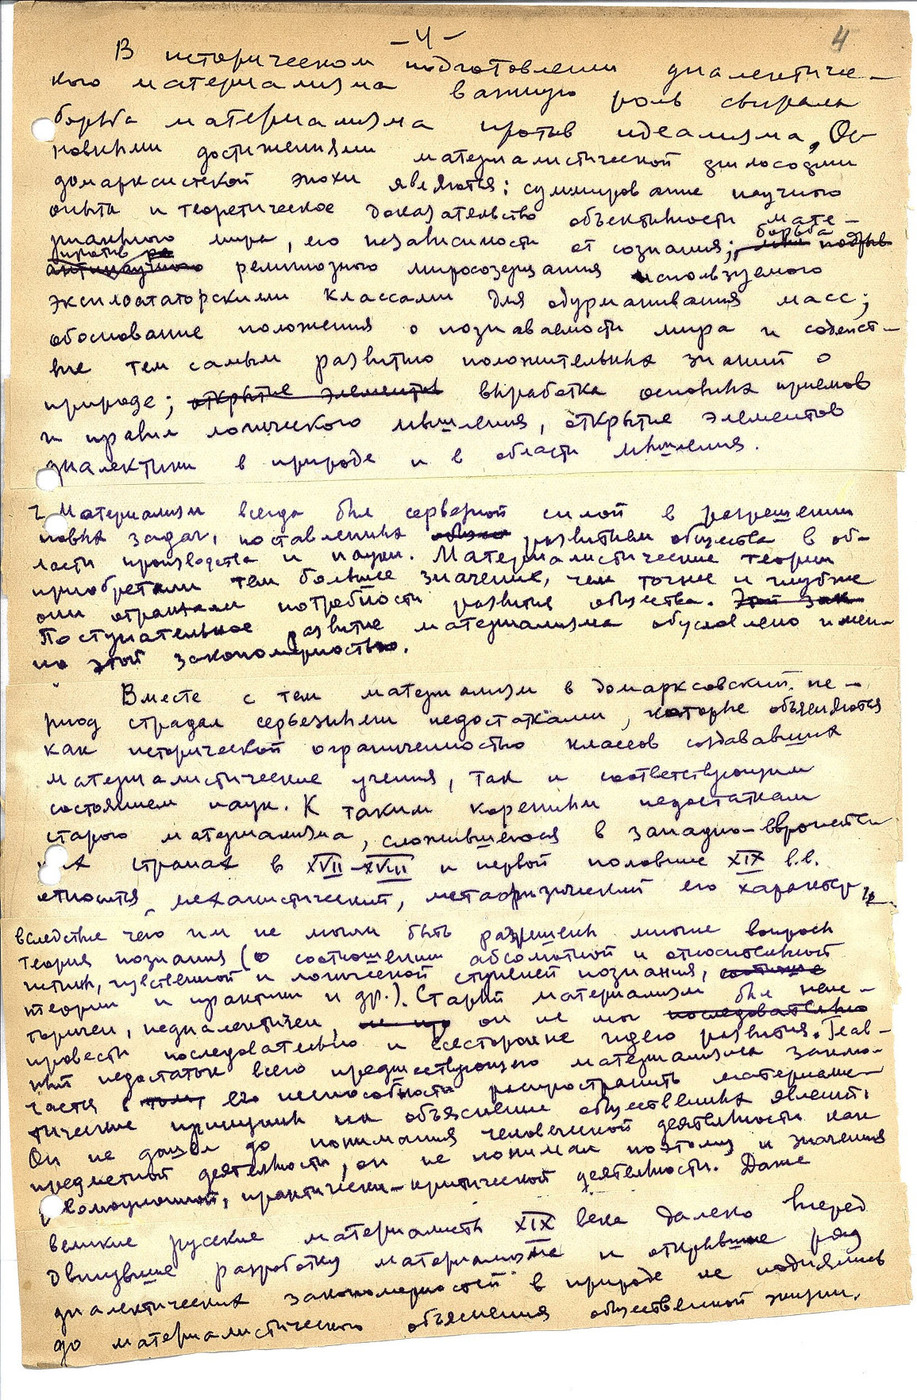 -4-
4
В историческом подготовлении диалектиче-
кого материализма важную роль сыграла
борьба материализма против идеализма. Ос-
новными достижениями материалистической философии
домарксистской эпохи являются: суммирование научного
опыта и теоретическое доказательство объективности мате-
риального мира, его независимости от сознания; борьба подрыв
против антинаучного религиозного миросозерцания используемого
эксплоататорскими классами для одурманивания масс;
обоснование положения о познаваемости мира и содейст-
вие тем самым развитию положительных знаний о
природе; открытие элементов выработка основных приемов
и правил логического мышления, открытие элементов
диалектики в природе и в области мышления.
Материализм всегда был серьезной силой в разрешении
новых задач, поставленных развитием общества в об-
ласти производства и науки. Материалистические теории
приобретали тем большее значение, чем точнее и глубже
они отражали потребности развития общества. Этой зак
Поступательное развитие материализма обусловлено имен-
но этой закономерностью.
Вместе с тем материализм в домарксовский пе-
риод страдал серьезными недостатками, которые объясняются
как исторической ограниченностью классов создававших
материалистические учения, так и соответствующим
состоянием наук. К таким коренным недостаткам
старого материализма, сложившегося в западно-европейс-
ких странах в XVII-XVIII и первой половине XIX в.в.
относится механистический, метафизический его характер,
вследствие чего им не могли быть разрешены многие вопросы
теории познания (о соотношении абсолютной и относительной
истин, чувственной и логической ступеней познания,
теории и практики и др.). Старый материализм был неис-
торичен, недиалектичен, он не мог последовательно
провести последовательно и всесторонне идею развития. Глав-
ный недостаток всего предшествующего материализма заклю-
чается в том, его неспособности распространить материалис-
тические принципы на объяснение общественных явлений.
Он не дошел до понимания человеческой деятельности как
предметной деятельности, он не понимал поэтому и значения
революционной, практически-критической деятельности. Даже
великие русские материалисты XIX века далеко вперед
двинувшие разработку материализма и открывшие ряд
диалектических закономерностей в природе не поднялись
до материалистического объяснения общественной жизни.